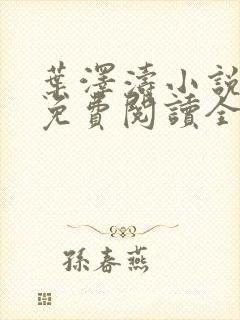 葉澤濤小說
免費閱讀全
孫春燕